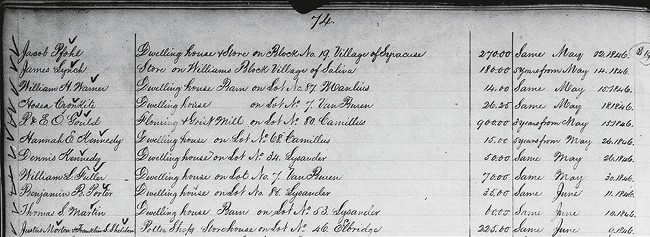 74.
Jacob Pfohl Dwelling house & Store on Block No. 19, Village of Syracuse 270.00 Same May 12. 1846.
James Lynch Store on Williams Block Village of Salina 180.00 5 years from May 14. 1846.
William H. Warner Dwelling house Barn on Lot No. 87. Manlius 14.00 Same May 15. 1846.
Hosea Cronkite Dwelling house on Lot No. 7. Van Buren 26.25 Same May 18 1846.
P & E O Gould Flouring & Grist Mill on Lot No. 80. Camillus 90.00 3 years from May 1846.
Hannah E Kennedy Dwelling house on Lot No 68 Camillus 15.00 5 years from May 26. 1846.
Dennis Kennedy Dwelling house on Lot No 34. Lysander 50.00 Same May 26. 1846.
William L. Fuller Dwelling house on Lot No 7. Van Buren 70.00 Same May 30. 1846.
Benjamin R. Porter Dwelling house on Lot No 86. Lysander 35.00 Same June 11. 1846.
Thomas S. Martin Dwelling house Barn on Lot No 53. Lysander Same June 10. 1846.
Justus Morton & Franklin S. Sheldon Potter Shop Storehouse on Lot No. 46. Elbridge 225.00 Same June 9. 1846.